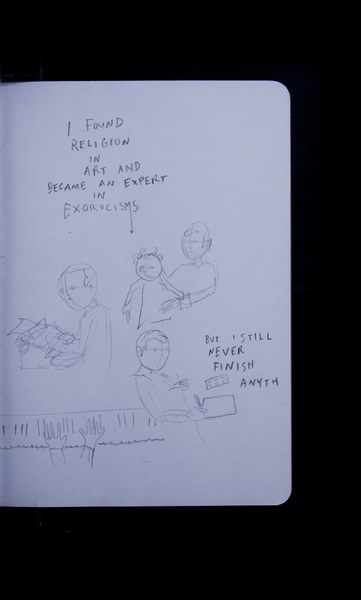 I FOUND
RELIGION
IN
ART AND
BECAME AN EXPERT
IN
EXOROCISMS
BUT I STILL
NEVER
FINISH
ANYTH